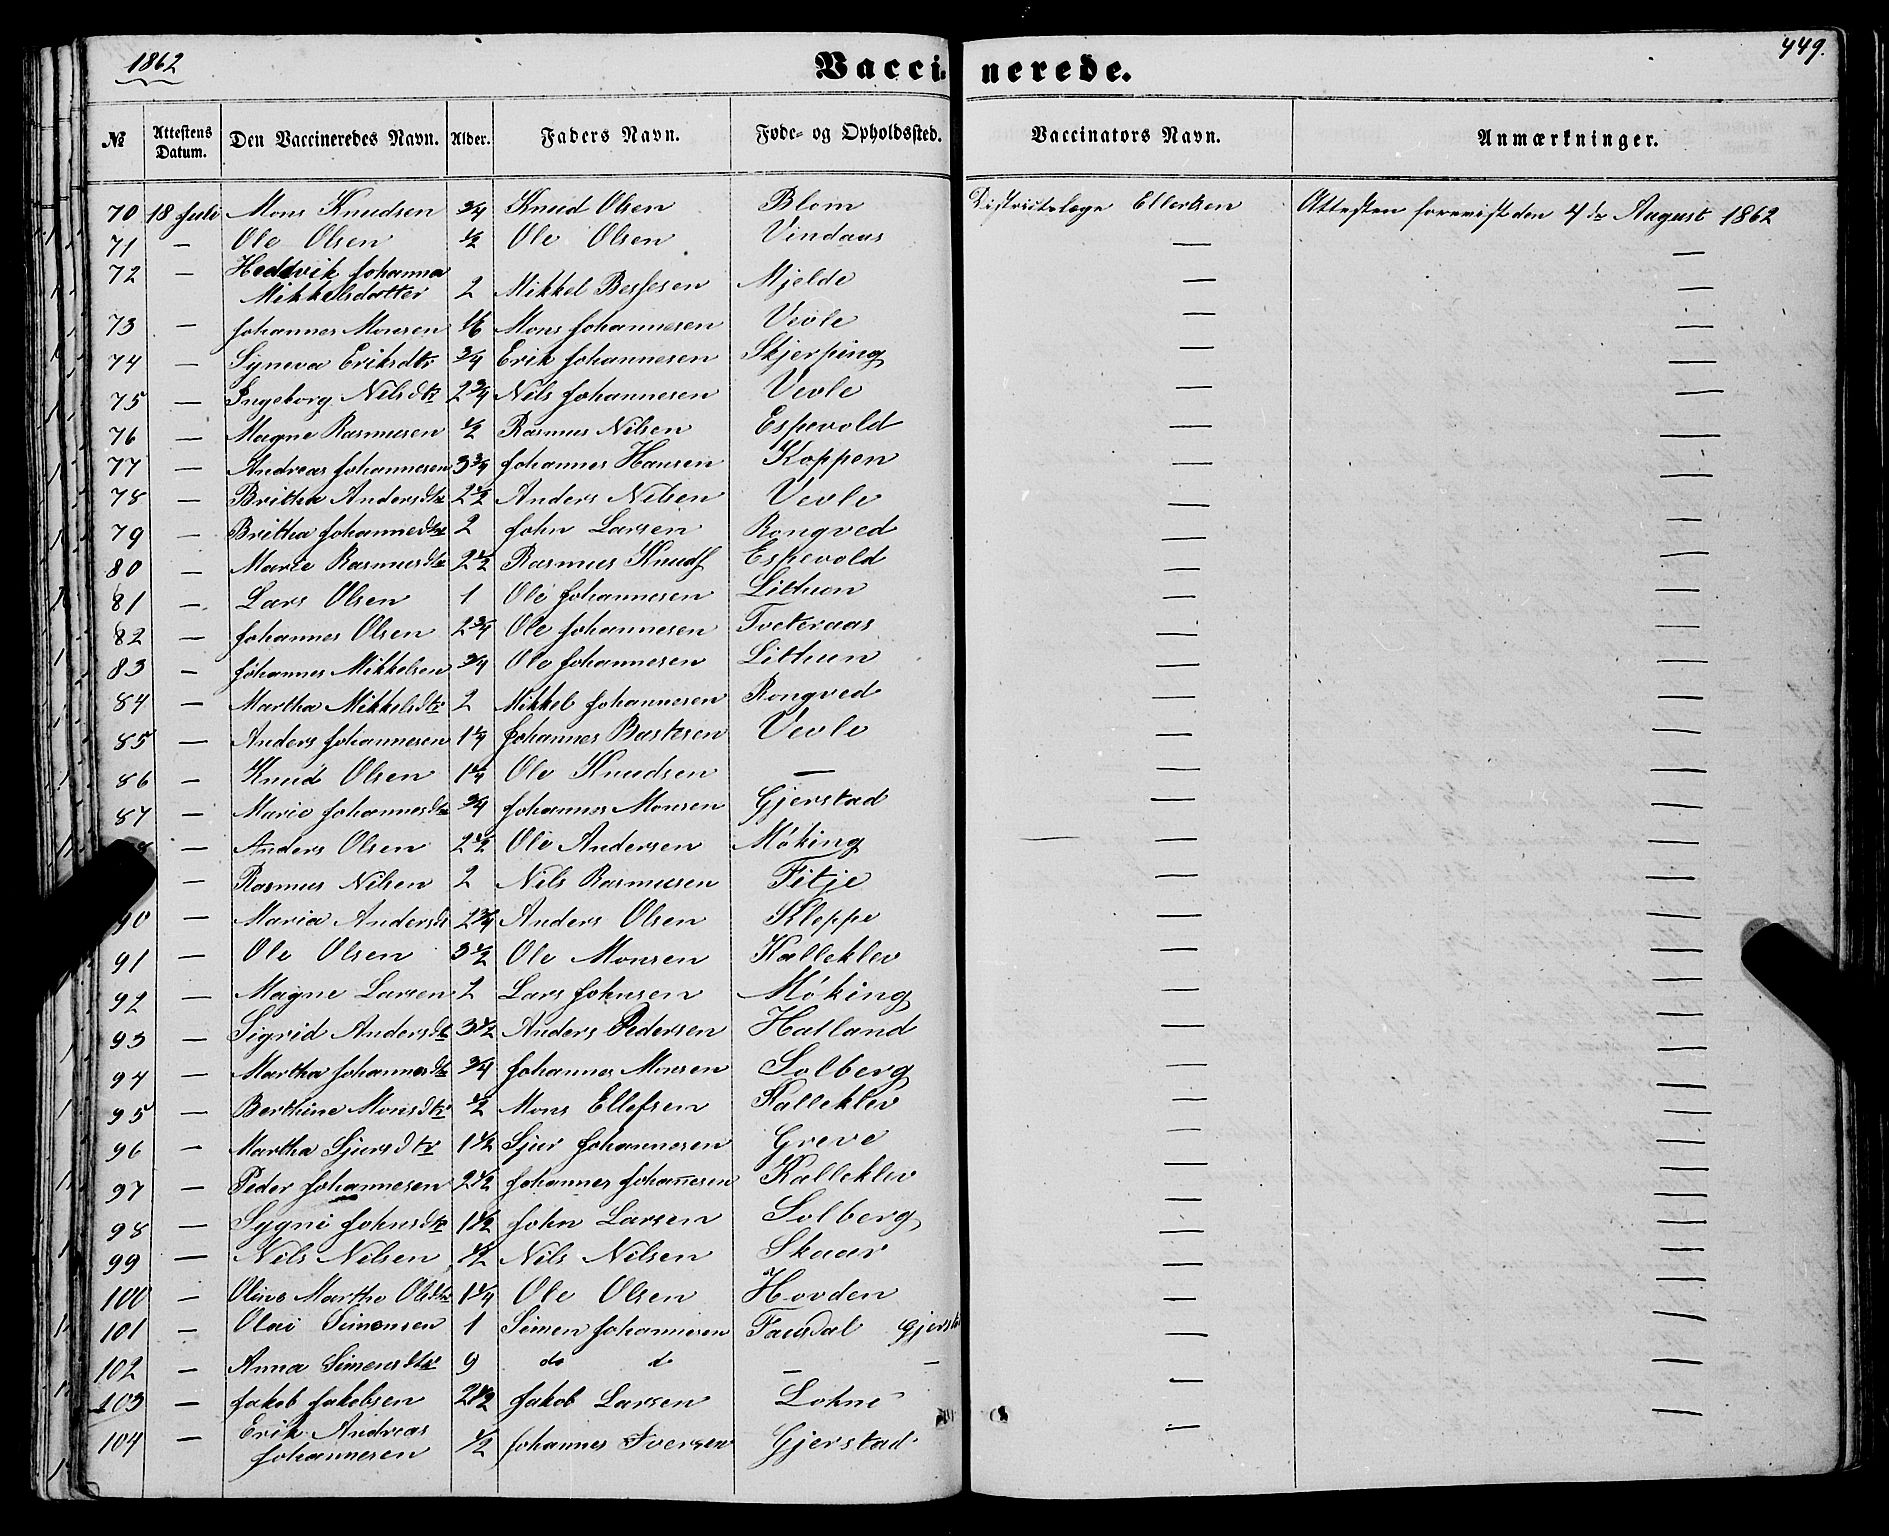 1862 Vaccinerede. 449.
№ Attestens Datum. Den Vaccineredes Navn. Alder. Faders Navn. Føde- og Opholdssted. Vaccinators Navn. Anmærkninger.
70 18 Juli Mons Knudsen 3/4 Knud Olsen Blom Districtslæge Ellertsen Attesten forevist den 4de August 1862
71 — Ole Olsen 1/2 Ole Olsen Vindaas — —
72 — Hedevik Johanna
Mikkelsdatter 2 Mikkel Mjelde — —
73 — Johannes Monsen 1/6 Mons Johannesen Vevle — —
74 — Syneva Eriksdtr 3/4 Erik Johannesen Skjerping — —
75 — Ingeborg Nilsdtr 2 3/4 Nils Johannesen Vevle — —
76 — Magne Rasmusen 1/2 Rasmus Nilsen Espevold — —
77 — Andreas Johannesen 3 3/4 Johannes Hansen Koppen — —
78 — Britha Andersdtr 2 1/2 Anders Nilsen Vevle — —
79 — Britha Johannesdtr 2 John Larsen Rongved — —
80 — Marie Rasmusdtr 2 1/2 Rasmus Knuds Espevold — —
81 — Lars Olsen 1 Ole Johannesen Lithun — —
82 — Johannes Olsen 2 3/4 Ole Johannesen Tveteraas — —
83 — Johannes Mikkelsen 3/4 Ole Johannesen Lithun — —
84 — Martha Mikkelsdtr 2 Mikkel Johannesen Rongved — —
85 — Anders Johannesen 1 1/4 Johannes Vevle — —
86 — Knud Olsen 1 1/4 Ole Knudsen — — —
87 — Marie Johannesdtr 3/4 Johannes Monsen Gjerstad — —
8 — Anders Olsen 2 1/2 Ole Andersen Møking — —
— Rasmus Nilsen 2 Nils Rasmusen Fitje — —
90 — Maria Andersd 2 3/4 Anders Olsen Kleppe — —
91 — Ole Olsen 3 1/2 Ole Monsen Kalleklev — —
92 — Magne Larsen 2 Lars Johnsen Møking — —
93 — Sigrid Andersdt 3 1/2 Anders Pedersen Hatland — —
94 — Martha Johannesdtr 3/4 Johannes Monsen Solberg — —
95 — Berthine Monsdtr 1/2 Mons Ellefsen Kalleklev — —
96 — Martha Sjursdtr 1 1/2 Sjur Johannesen Greve — —
97 — Peder Johannesen 2 1/2 Johannes Johannesen Kalleklev — —
98 — Sygni Johnsdtr 1 1/2 John Larsen Solberg — —
99 — Nils Nilsen 1/2 Nils Nilsen Skaar — —
100 — Martha Olsdtr 1 1/4 Ole Olsen Hovden — —
101 — Olai Simonsen 1 Simen Johannesen — —
102 — Anna Simensdtr 9 do — — — —
103 — Jakob Jakobsen 2 1/2 Jakob Larsen Lohne — —
104 — Erik Andreas
Johannesen 1/2 Johannes Iversen Gjerstad —